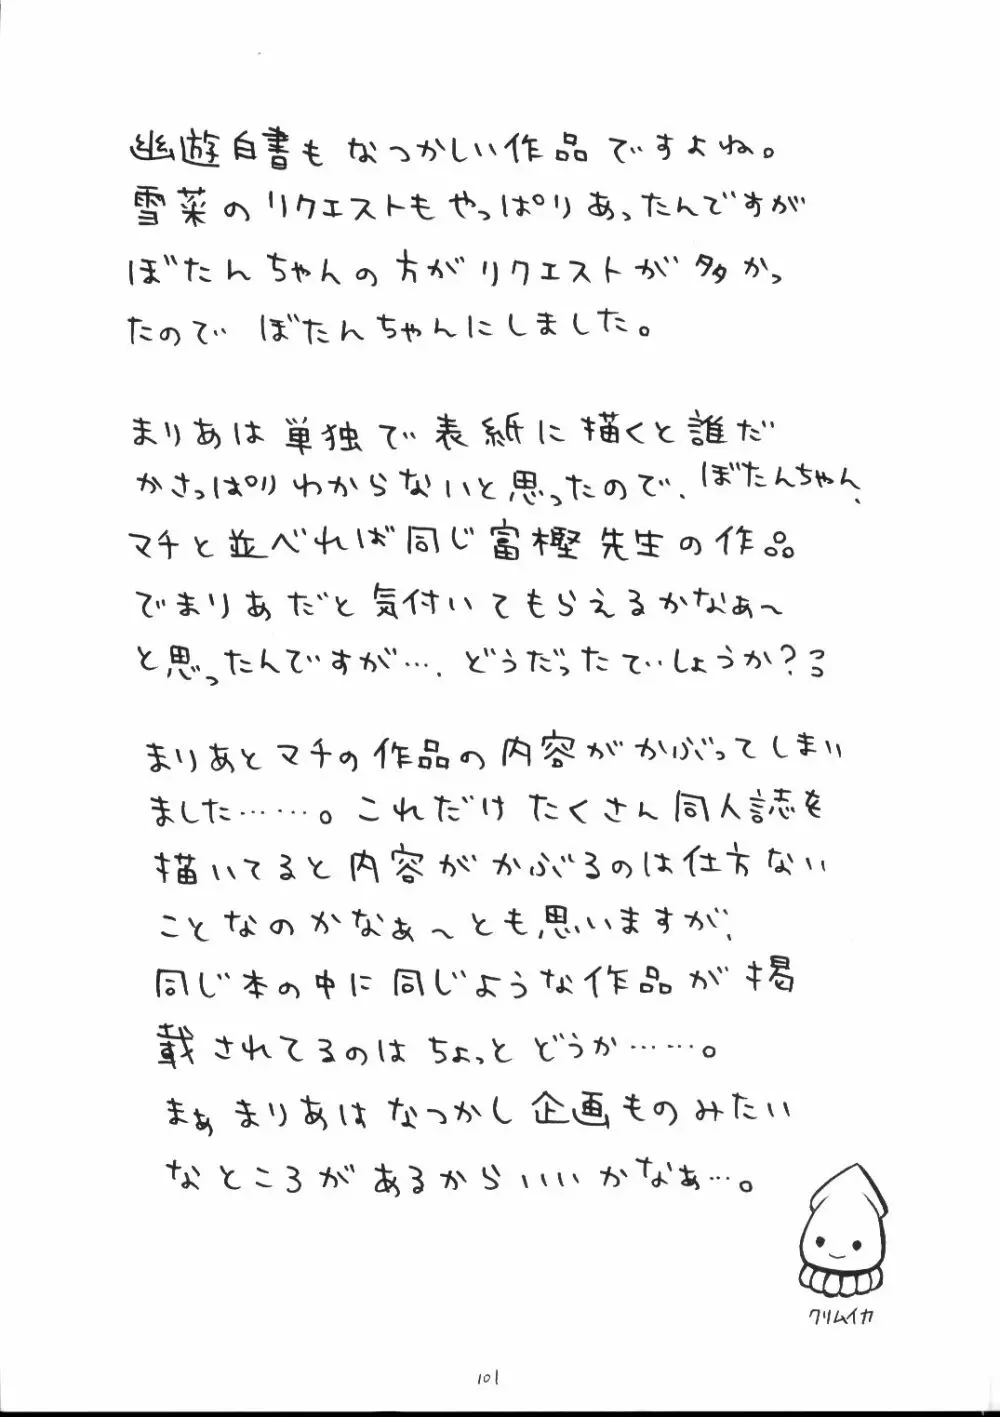 幽遊白書もなつかしい作品ですよね。
雪菜のリクエストもやっぱりあったんですが
ぼたんちゃんの方がリクエストが多かっ
たのでぼたんちゃんにしました。
まりあは単独で表紙に描くと誰だ
かさっぱりわからないと思ったので、ぼたんちゃん、
マチと並べれば同じ富樫先生の作品
でまりあだと気付いてもらえるかなぁ〜
と思ったんですが…、どうだったでしょうか?
まりあとマチの作品の内容がかぶってしまい
ました……。これだけたくさん同人誌を
描いてると内容がかぶるのは仕方ない
ことなのかなぁ〜とも思いますが、
同じ本の中に同じような作品が掲
載されてるのはちょっとどうか……。
まぁまりあはなつかし企画ものみたい
なところがあるからいいかなぁ…。
クリムイカ
101